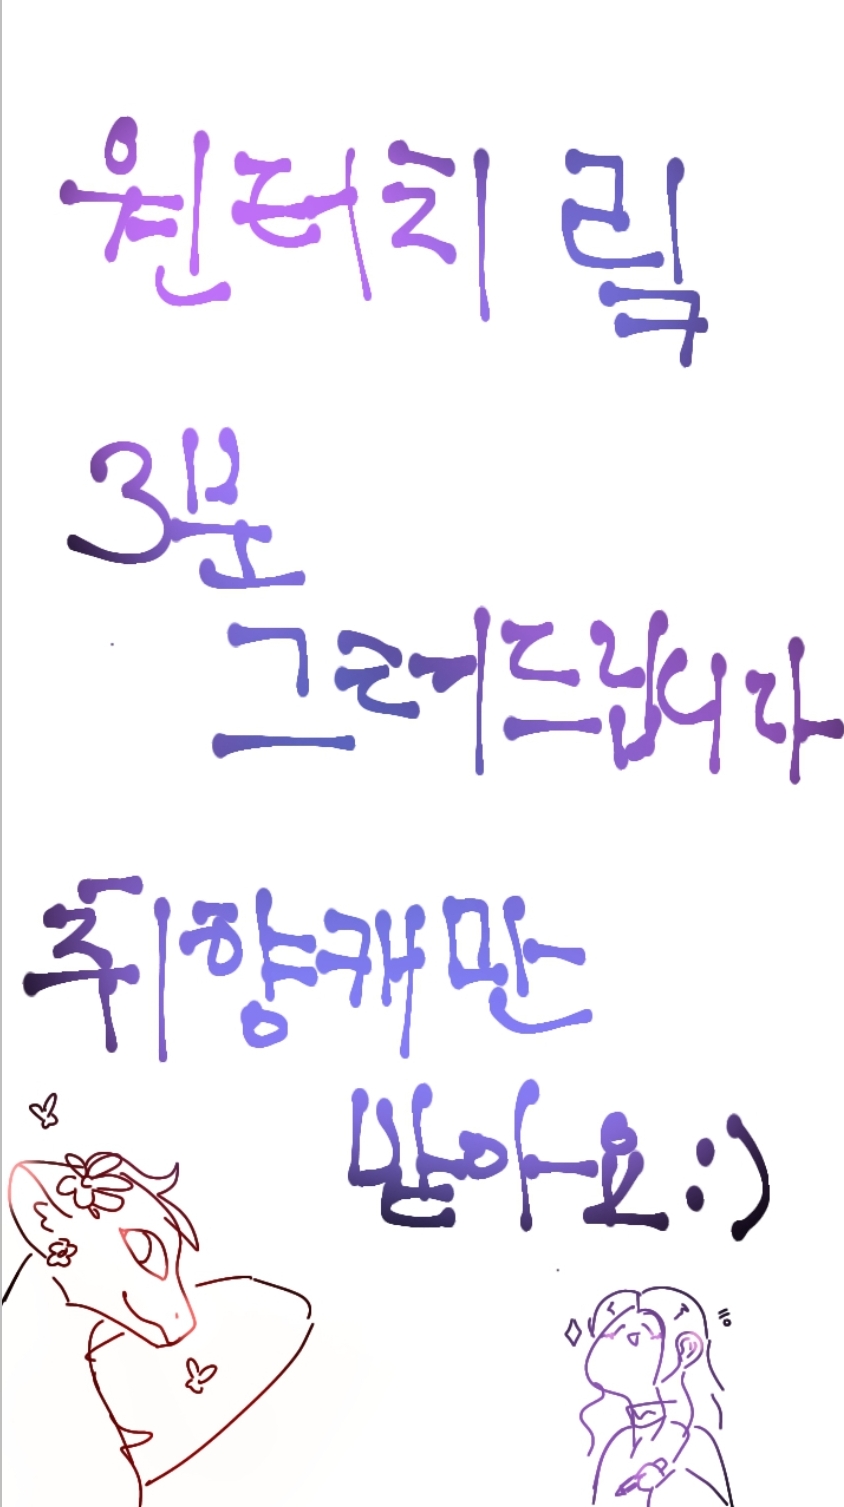 원터치 림
3분
그려드립니다
취향캐만
받아요 :)